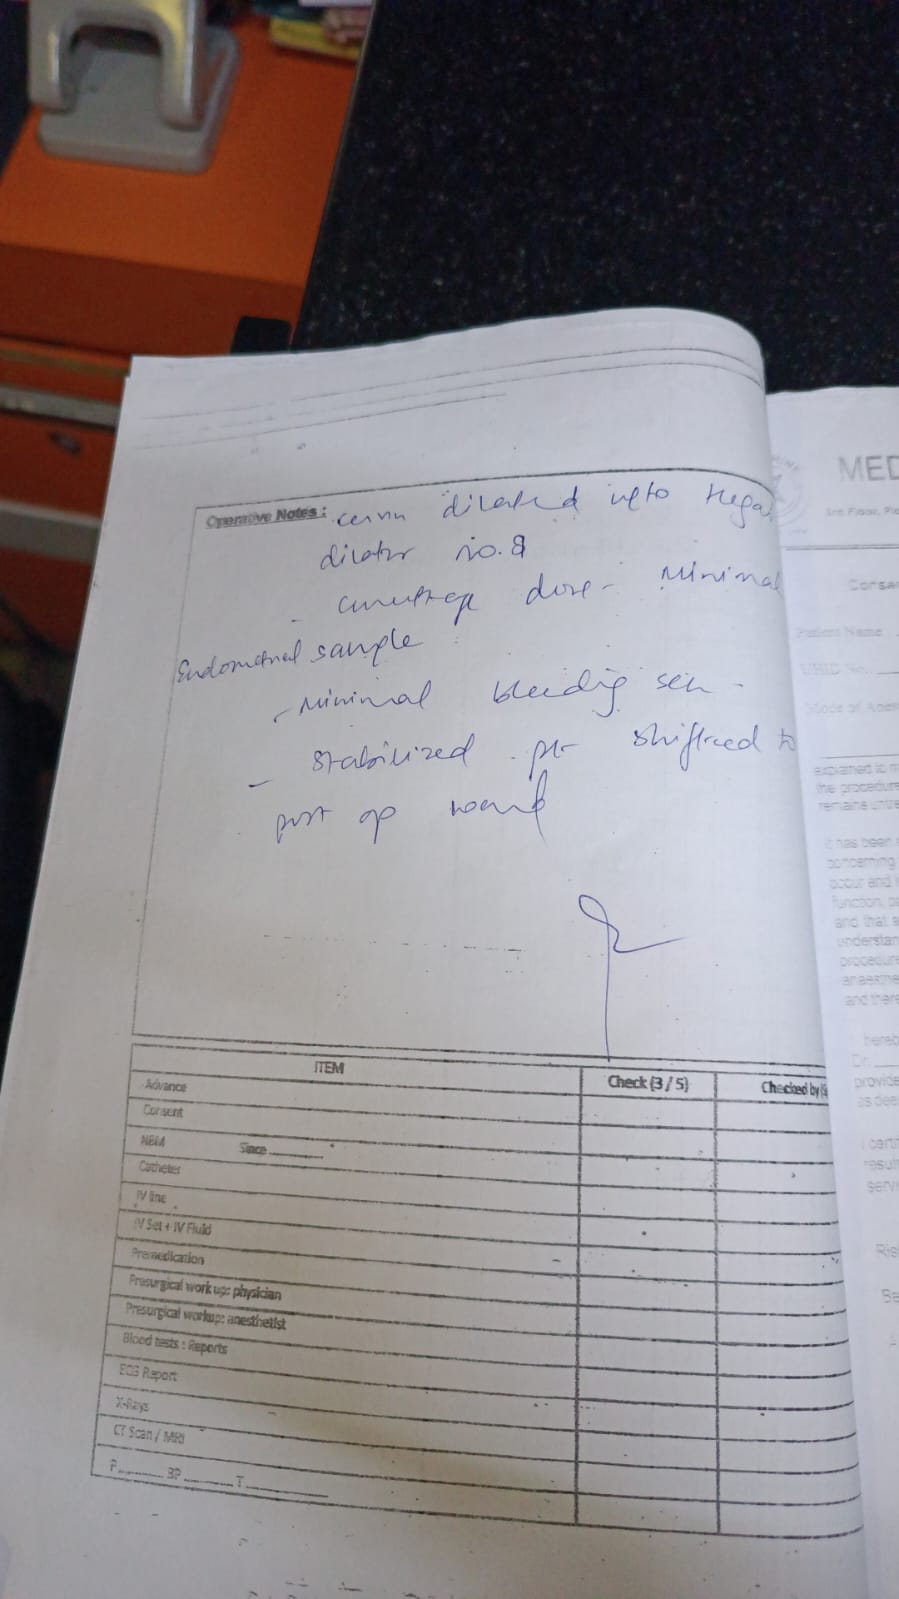 MED
3rd Floor, Pl
Conse
Patient Name
UHID No.
Mode of Anes
explained to m
the procedure
remains untre
It has been
concerning
occur and
function, pa
and that a
understan
procedure
anaesthe
and there
hereb
Dr.
provide
as dee
I certi
result
servi
Ris
Operative Notes : cervix dilated upto Hega
dilator no. 8
- curettage done - Minimal
Endometrial sample
- Minimal bleeding seen -
- stabilized . pt shiftted to
post op ward
ITEM Check (3 / 5) Checked by (S
Advance
Consent
NBM Since
Catheter
IV line
IV Set + IV Fluid
Premedication
Presurgical work up: physician
Presurgical workup: anesthetist
Blood tests : Reports
ECG Report
X-Rays
CT Scan / MRI
P BP T